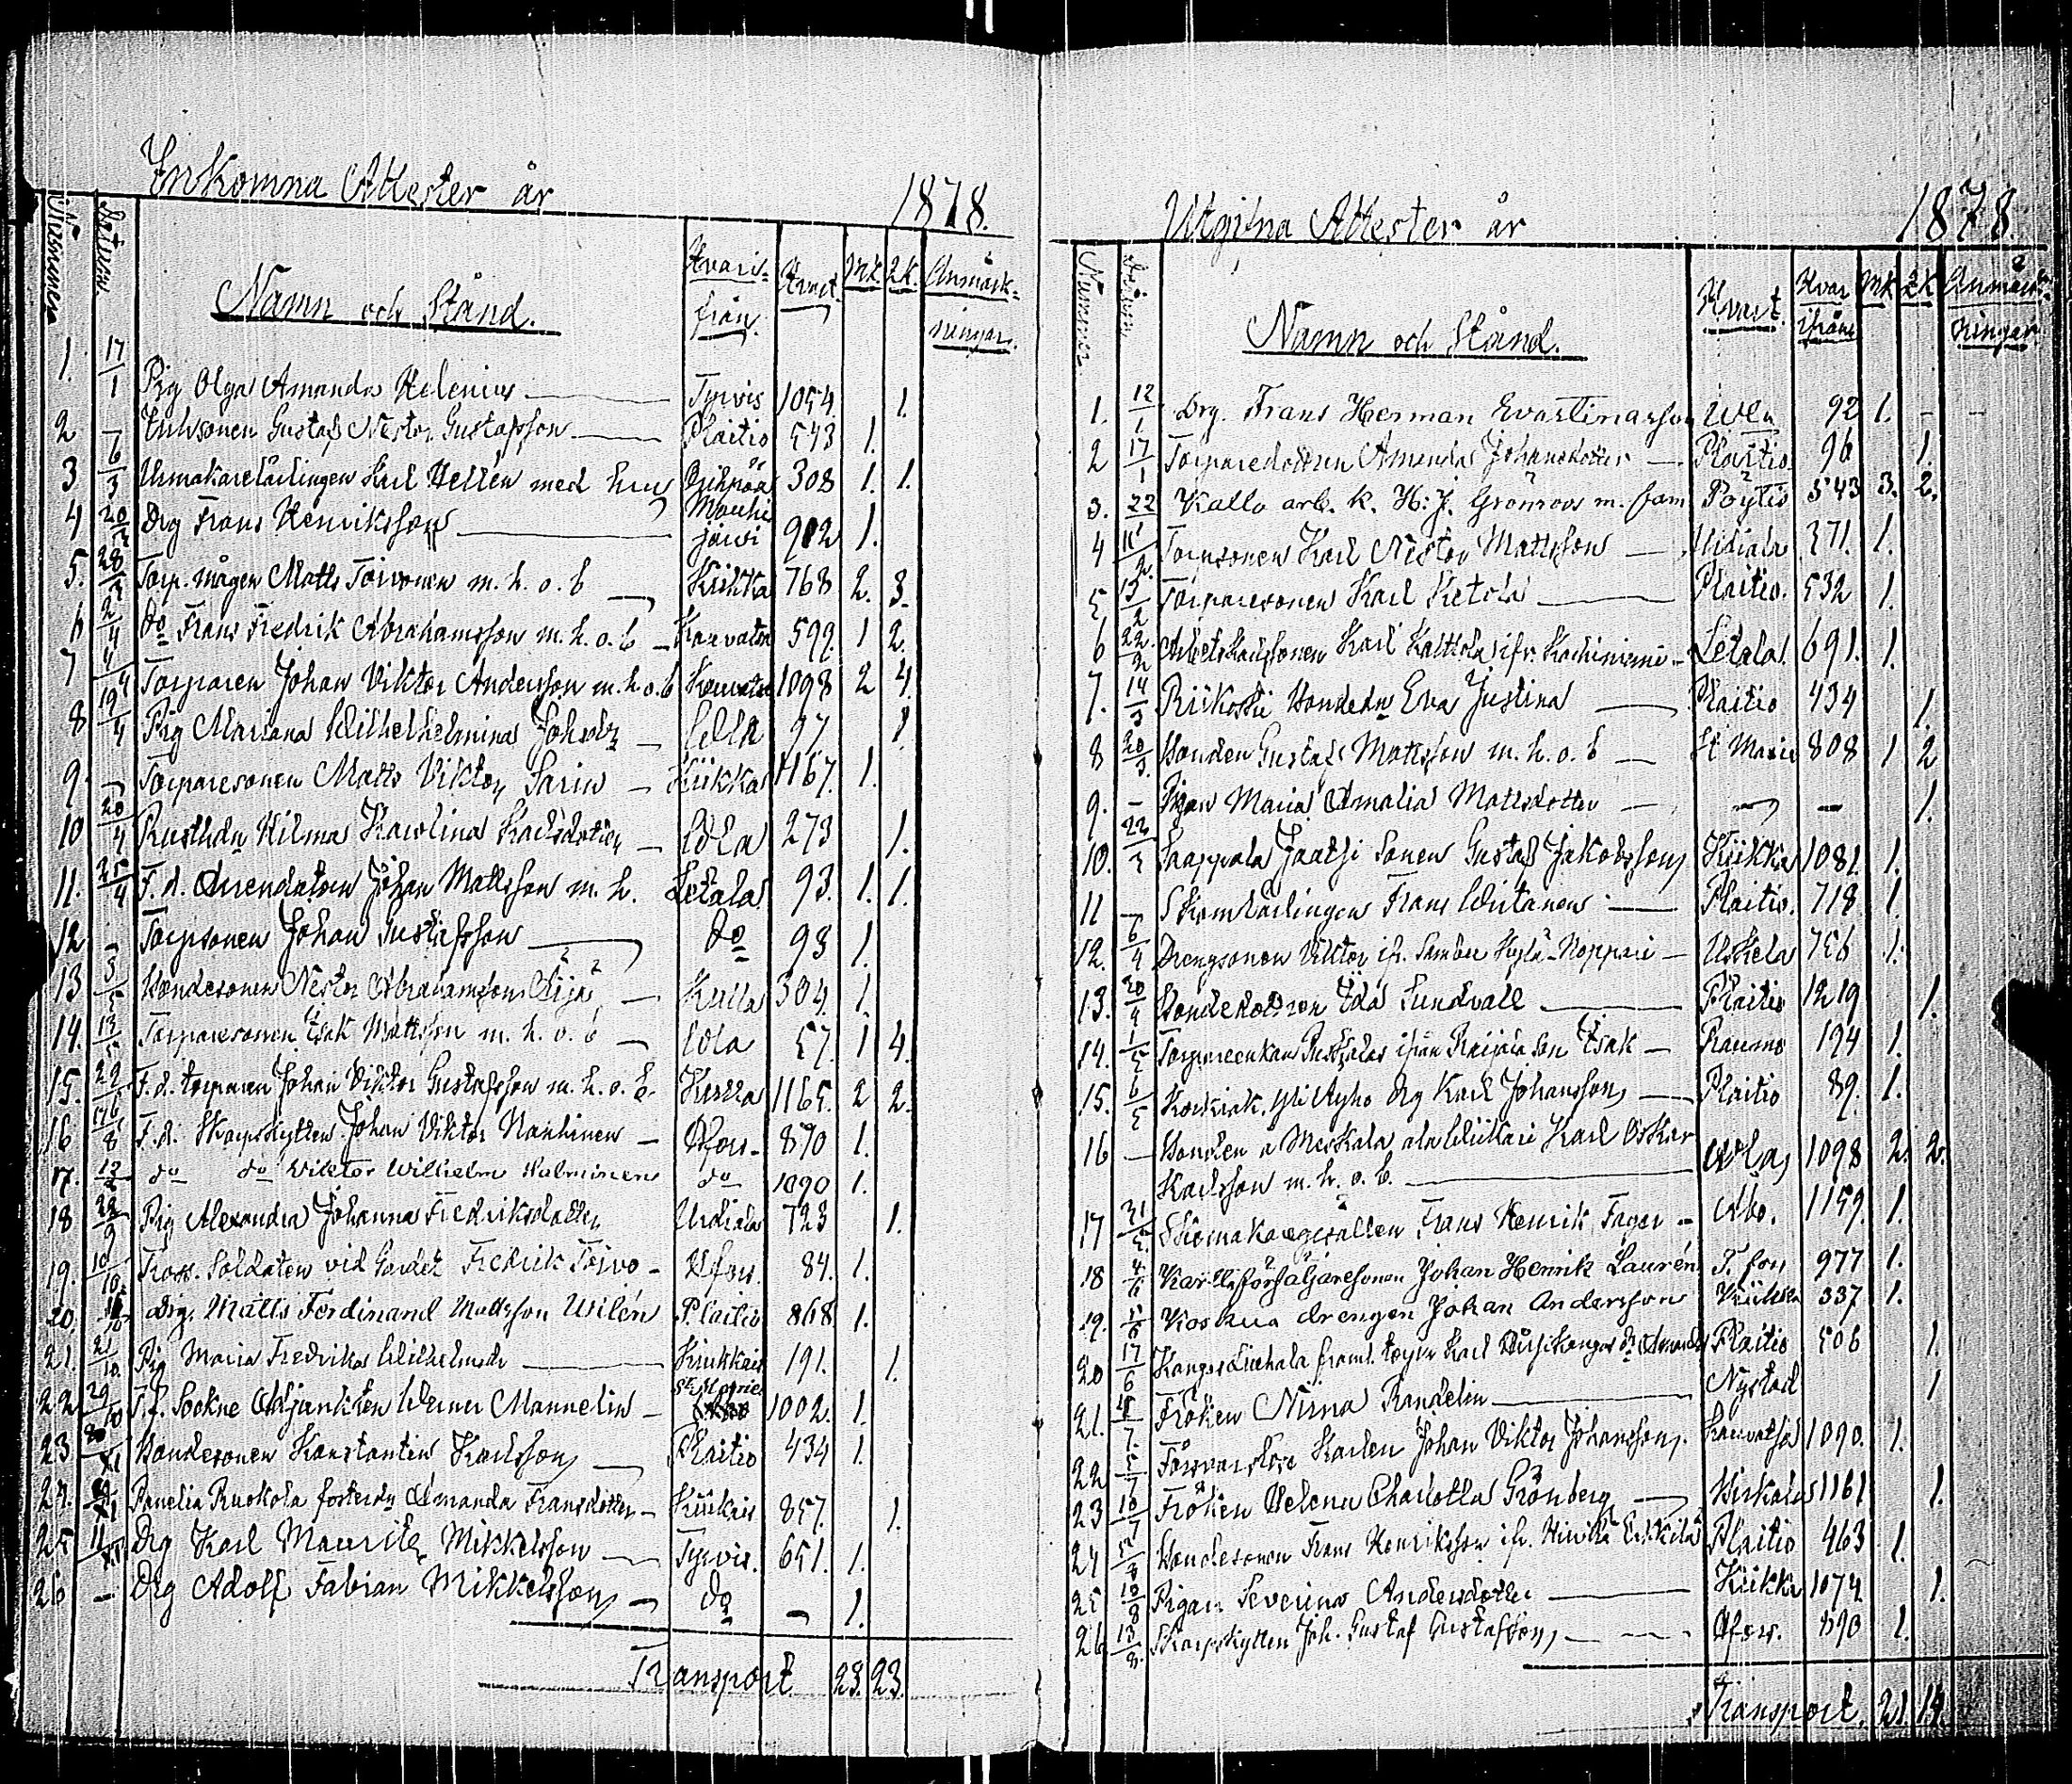 Inkomna Attester år 1878.
Nummer Datum. Namn och Stånd. Hvarifrån. Hvart. Mk. Qk. Anmärkningar.
1. 17/1 Pig Olga Amanda Helenius Tyrvis 1054. 1.
2 — Inhsonen Gustaf Nestor Gustafsson Plaitis 543 1.
3 6/3 Urmakarelärlingen Karl Hellén med hu 308 1. 1.
4 20/ Drg Frans Henriksson Mouhijärvi 902 1.
5. 28/ Torp. mågen Matts Toivonen m. h. o. b Kiikka 768 2. 3.
6 2/4 do Frans Fredrik Abrahamsson m. h. o. b Kauvatsa 599. 1 2.
7 4/4 Torparen Johan Viktor Andersson m. h. o. b Kauvatsa 1098 2 4.
8 19/4 Pig Mariana Wilhelhelmina Johsdr Ulvila 97 1
9. — Torparesonen Matts Viktor Sarin Kiikka 1167. 1.
10 20/4 Rusthdn Hilma Karolina Karlsdotter 273 1.
11. 25/4 F. d. Arendatorn Johan Mattsson m. h. Letala 93. 1. 1.
12 — Torpsonen Johan Gustafsson do 93 1.
13 3/5 Bondesonen Nestor Abrahamsson Äijä Kulla 304. 1.
14. 13/5 Torparesonen Isak Mattsson m. h. o. b 57. 1 4.
15. 29/ F. d. torparen Johan Viktor Gustafsson m. h. o. b. 1165. 2 2.
16 16/8 F. d. Skarpskytten Johan Viktor Nanhinen Hfors. 890 1.
17. 12/ do do Viktor Wilhelm Halminen do 1090 1.
18 22/9 Pig Alexandra Johanna Fredriksdotter Urdiala 723 1.
19. 10/10. Tross. Soldaten vid Gardet Fredrik Toivo Hfors 84. 1.
20. /10 Drg. Matts Ferdinand Mattsson Wilén Plaitis 868 1.
21. 21/10. Pig Maria Fredrika Wilhelmsdr Kiukkais 191. 1.
22 29/10 T. f. Sockne Adjunkten Werner Mannelin St Marie 1002. 1.
23 /XI Bondesonen Konstantin Karlsson Plaitis 434 1.
24. /XI Panelia Ruokola fosterdn Amanda Fransdotter Kiukais 857. 1.
25 11/ Drg Karl Mauritz Mikkelsson Tyrvis. 651. 1.
26 — Drg Adolf Fabian Mikkelsson do — 1.
Transport 23. 23.
Utgifna Attester år 1878.
Nummer Datum Namn och Stånd. Hvart. Hvarifrån Mk Qk Anmärkningar.
1. 12/1 Drg. Frans Herman Evastinasson 92 1. — —
2 17/1 Torparedottren Amanda Johansdotter Plaitis 96 1.
3. 22 Kallo arb. k. H: J. Grönroos m. fam Pöytis 543 3. 2.
4 11/2. Torpsonen Karl Nestor Mattsson Urdiala 371. 1.
5 13/2 Torparesonen Karl Ketola Plaitis. 532 1.
6 22./2 Arbetskarlssonen Karl Kalttola ifr. Letala 691. 1.
7. 14/3 Riikoski Bondedn Eva Justina Plaitis 434 1.
8 20/3. Bonden Gustaf Mattsson m. h. o. b St Marie 808 1 2
9. — Pigan Maria Amalia Mattsdotter — 1.
10. 22/3 Saappala Jaatsi Sonen Gustaf Jakobsson Kiikka 1081. 1.
11 — Skomlärlingen Frans Wiitanen Plaitis. 718 1.
12. 6/4 Drengsonen Viktor ifr. Sambu Uskela 756 1.
13. 20/4 Bondedottren Ida Sundvall Plaitis 1219 1.
14. 1/5 Torpareenkan ifrån Raijala Son Isak Raumo 194 1.
15. 6/5 Drg Karl Johansson Plaitis 89. 1.
16 — Bonden å Meskala Karl Oskar
Karlsson m. h. o. b. 1098 2. 2.
17 31/5. Skomakaregesällen Frans Henrik Fager Åbo. 1159. 1.
18 4/6 försäljaresonen Johan Henrik Laurén T. fors 977 1.
19. 5/6 Koskua drengen Johan Andersson Kiikka 337 1.
20 17/6 Plaitis 506 1.
21. /7. Fröken Niina Randelin Nystad 1
22 5/7 Försvarslöse Karlen Johan Viktor Johansson. Kauvatsa 1090. 1.
23 10/7 Fröken Helena Charlotta Grönberg 1161 1.
24 5/8 Bondesonen Frans Henriksson ifr. Plaitis 463 1.
25 10/8 Pigan Severina Andersdotter Kiikka 1074 1.
26 13/8. Skarpskytten Joh. Gustaf Gustafsson Hfors. 890 1.
Transport. 21. 14.